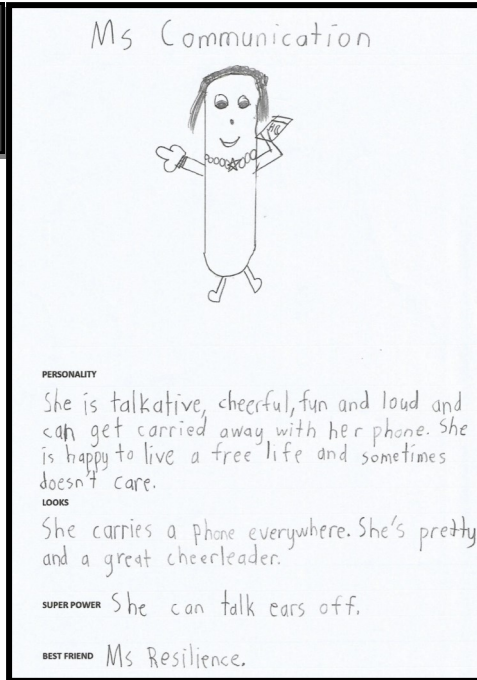 Ms Communication
Hi
PERSONALITY
She is talkative, cheerful, fun and loud and
can get carried away with her phone. She
is happy to live a free life and sometimes
doesn't care.
LOOKS
She carries a phone everywhere. She's pretty
and a great cheerleader.
SUPER POWER She can talk ears off.
BEST FRIEND Ms Resilience.